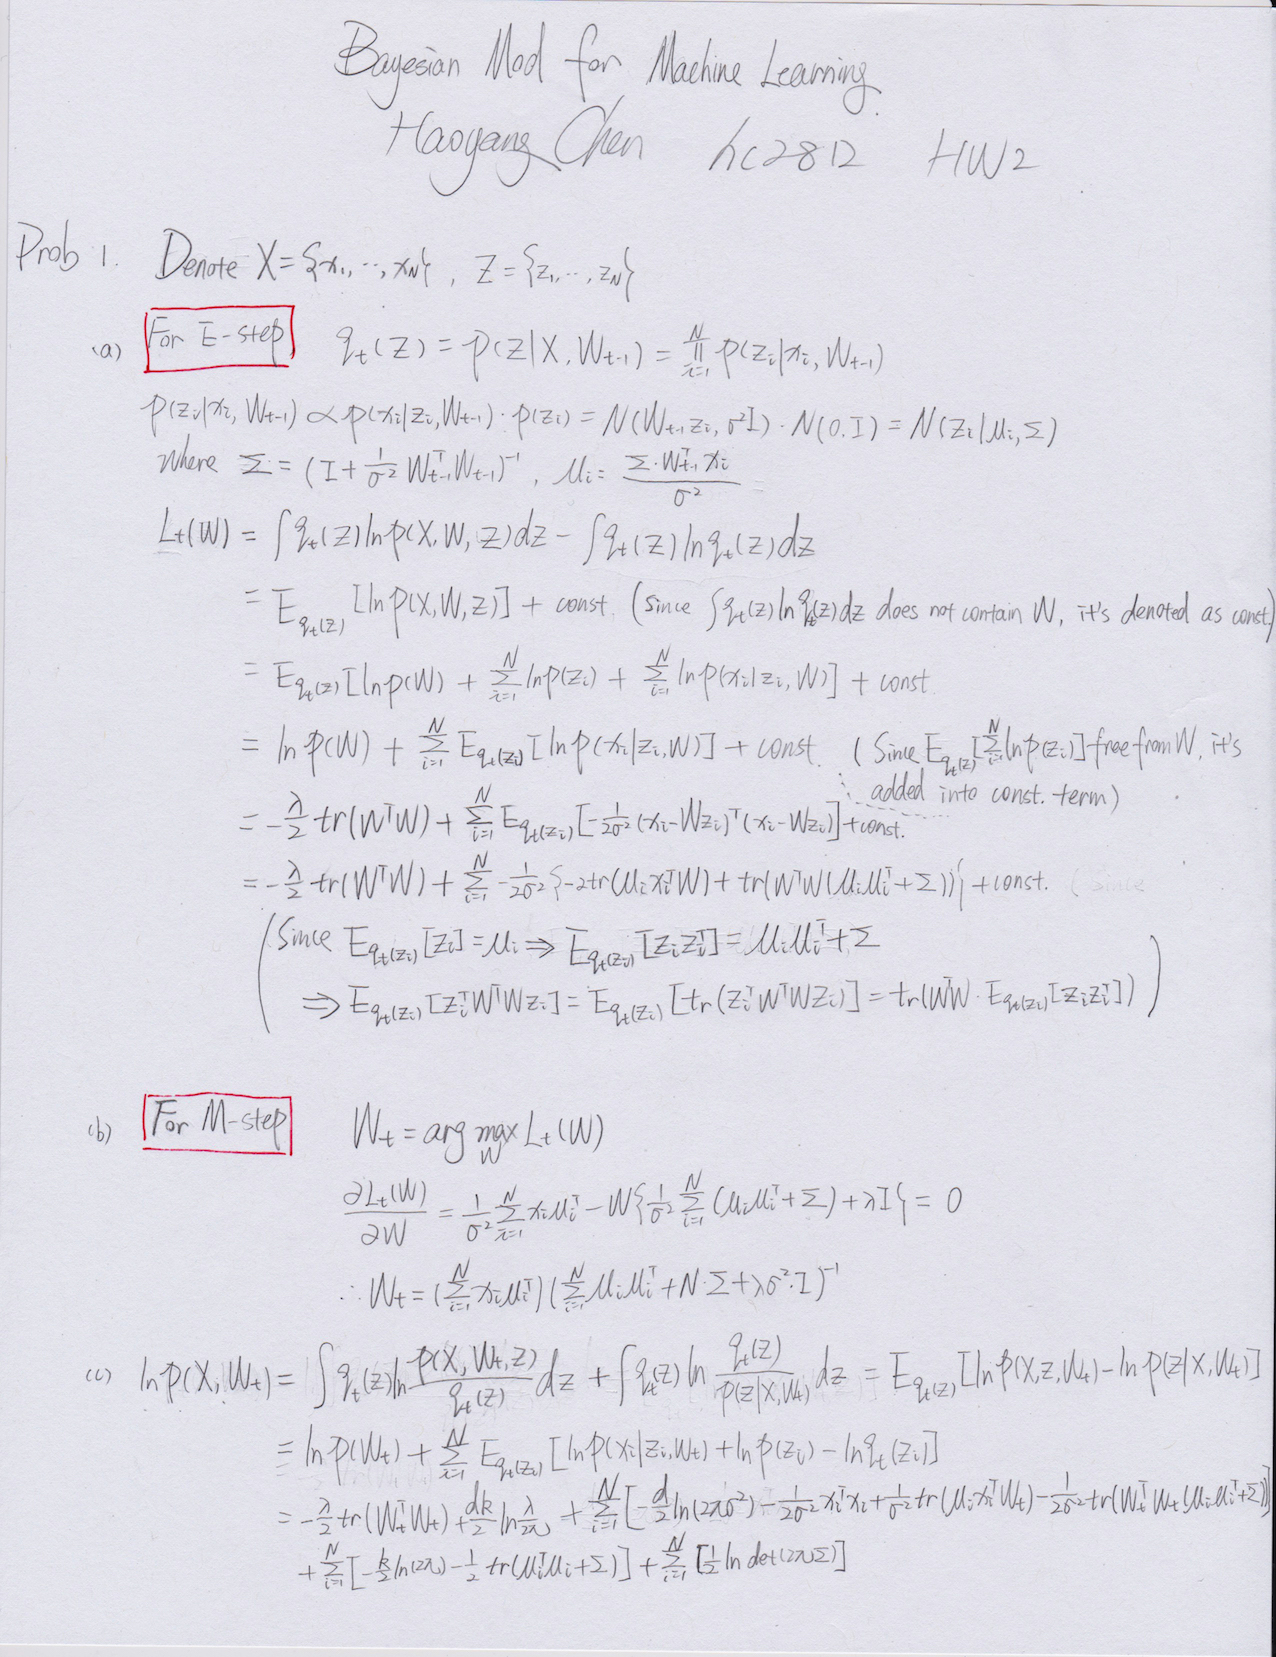 Bayesian Mod for Machine Learning
Haoyang Chen hc2812 HW2
Prob 1. Denote X = {x₁, ⋯, x_N}, Z = {z₁, ⋯, z_N}
(a) For E-step q_t(Z) = p(Z|X, W_{t-1}) = ∏_{i=1}^N p(z_i|x_i, W_{t-1})
p(z_i|x_i, W_{t-1}) ∝ p(x_i|z_i, W_{t-1}) · p(z_i) = N(W_{t-1}z_i, σ²I) · N(0, I) = N(z_i|μ_i, Σ)
where Σ = (I + 1/σ² W_{t-1}^T W_{t-1})^{-1}, μ_i = Σ·W_{t-1}^T x_i / σ²
L_t(W) = ∫q_t(Z) ln p(X, W, Z)dz − ∫q_t(Z) ln q_t(Z)dz
= E_{q_t(Z)}[ln p(X, W, Z)] + const. (Since ∫q_t(Z) ln q_t(Z)dz does not contain W, it's denoted as const.)
= E_{q_t(Z)}[ln p(W) + Σ_{i=1}^N ln p(z_i) + Σ_{i=1}^N ln p(x_i|z_i, W)] + const
= ln p(W) + Σ_{i=1}^N E_{q_t(z_i)}[ln p(x_i|z_i, W)] + const. (Since E_{q_t(Z)}[Σ_{i=1}^N ln p(z_i)] free from W, it's
added into const. term)
= −λ/2 tr(W^T W) + Σ_{i=1}^N E_{q_t(z_i)}[−1/2σ² (x_i − Wz_i)^T (x_i − Wz_i)] + const.
= −λ/2 tr(W^T W) + Σ_{i=1}^N −1/2σ² {−2tr(μ_i x_i^T W) + tr(W^T W(μ_i μ_i^T + Σ))} + const. (Since
(Since E_{q_t(z_i)}[z_i] = μ_i ⇒ E_{q_t(z_i)}[z_i z_i^T] = μ_i μ_i^T + Σ
⇒ E_{q_t(z_i)}[z_i^T W^T W z_i] = E_{q_t(z_i)}[tr(z_i^T W^T W z_i)] = tr(W^T W · E_{q_t(z_i)}[z_i z_i^T]))
(b) For M-step W_t = arg max_W L_t(W)
∂L_t(W)/∂W = 1/σ² Σ_{i=1}^N x_i μ_i^T − W{1/σ² Σ_{i=1}^N (μ_i μ_i^T + Σ) + λI} = 0
∴ W_t = (Σ_{i=1}^N x_i μ_i^T)(Σ_{i=1}^N μ_i μ_i^T + N·Σ + λσ²·I)^{-1}
(c) ln p(X, W_t) = ∫q_t(z) ln p(X, W_t, Z)/q_t(Z) dz + ∫q_t(z) ln q_t(Z)/p(Z|X, W_t) dz = E_{q_t(Z)}[ln p(X, Z, W_t) − ln p(Z|X, W_t)]
= ln p(W_t) + Σ_{i=1}^N E_{q_t(z_i)}[ln p(x_i|z_i, W_t) + ln p(z_i) − ln q_t(z_i)]
= −λ/2 tr(W_t^T W_t) + dk/2 ln λ/2π + Σ_{i=1}^N [−d/2 ln(2πσ²) − 1/2σ² x_i^T x_i + 1/σ² tr(μ_i x_i^T W_t) − 1/2σ² tr(W_t^T W_t (μ_i μ_i^T + Σ))]
+ Σ_{i=1}^N [−k/2 ln(2π) − 1/2 tr(μ_i^T μ_i + Σ)] + Σ_{i=1}^N [1/2 ln det(2πΣ)]